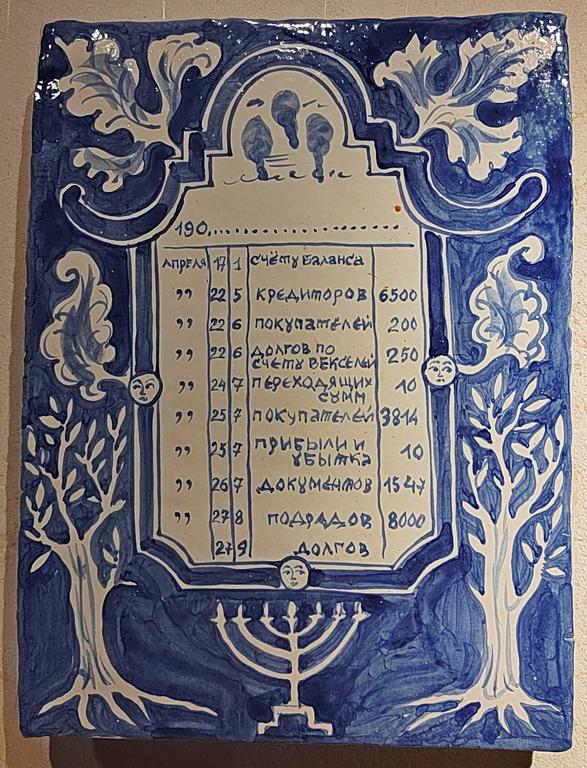 190,......................
АПРЕЛЯ 17 1 СЧЁТУ БАЛАНСА
" 22 5 КРЕДИТОРОВ 6500
" 22 6 ПОКУПАТЕЛЕЙ 200
" 22 6 ДОЛГОВ ПО
СЧЕТУ ВЕКСЕЛЕЙ 250
" 24 7 ПЕРЕХОДЯЩИХ
СУММ 10
" 25 7 ПОКУПАТЕЛЕЙ 3814
" 25 7 ПРИБЫЛИ И
УБЫТКА 10
" 26 7 ДОКУМЕНТОВ 1547
" 27 8 ПОДРАДОВ 8000
27 9 ДОЛГОВ